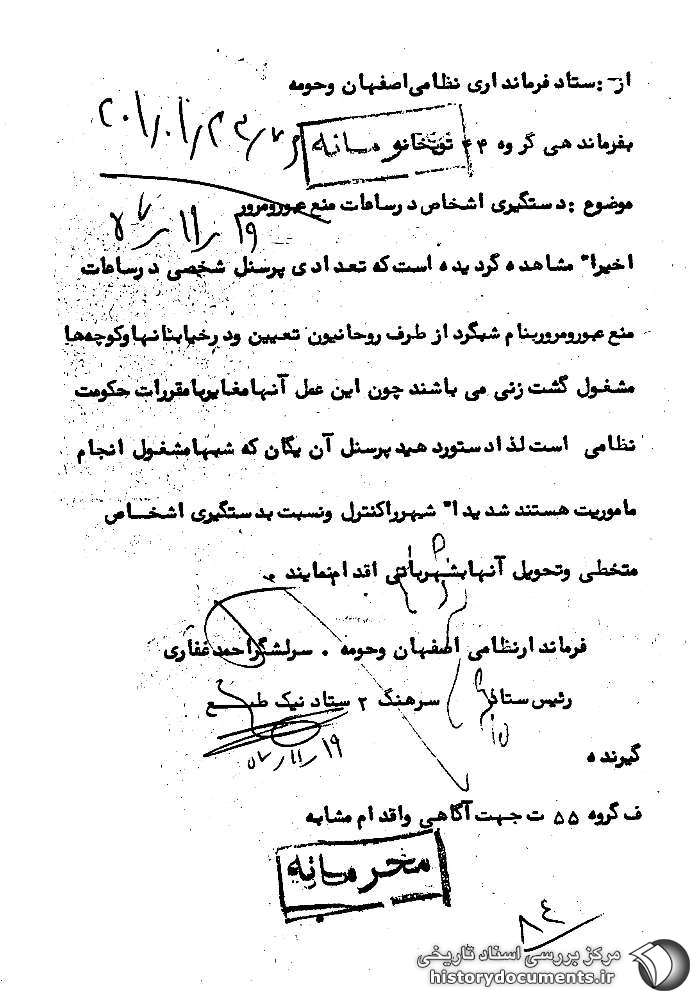 از :ستاد فرمانداری نظامی اصفهان وحومه
بفرماندهی گروه ۴۴ توپخانه
محرمانه
۲۰۱٫۰۱٫
موضوع :دستگیری اشخاص درساعات منع عبورومرور
۱۹٫۱۱٫۵۷
اخیرا" مشاهده گردیده است که تعدادی پرسنل شخصی درساعات
منع عبورومروربنام شبگرد از طرف روحانیون تعیین ودرخیابانهاوکوچه‌ها
مشغول گشت زنی می باشند چون این عمل آنهامغایربامقررات حکومت
نظامی است لذادستوردهیدپرسنل آن یگان که شبهامشغول انجام
ماموریت هستند شدیدا" شهرراکنترل ونسبت بدستگیری اشخاص
متخطی وتحویل آنهابشهربانی اقدام‌نمایند .
فرماندارنظامی اصفهان وحومه . سرلشگراحمدغفاری
رئیس ستاد سرهنگ ۲ ستاد نیک طبع
۵۷٫۱۱٫۱۹
گیرنده
ف گروه ۵۵ ت جهت آگاهی واقدام مشابه
محرمانه
۸۴
مرکز بررسی اسناد تاریخی
historydocuments.ir